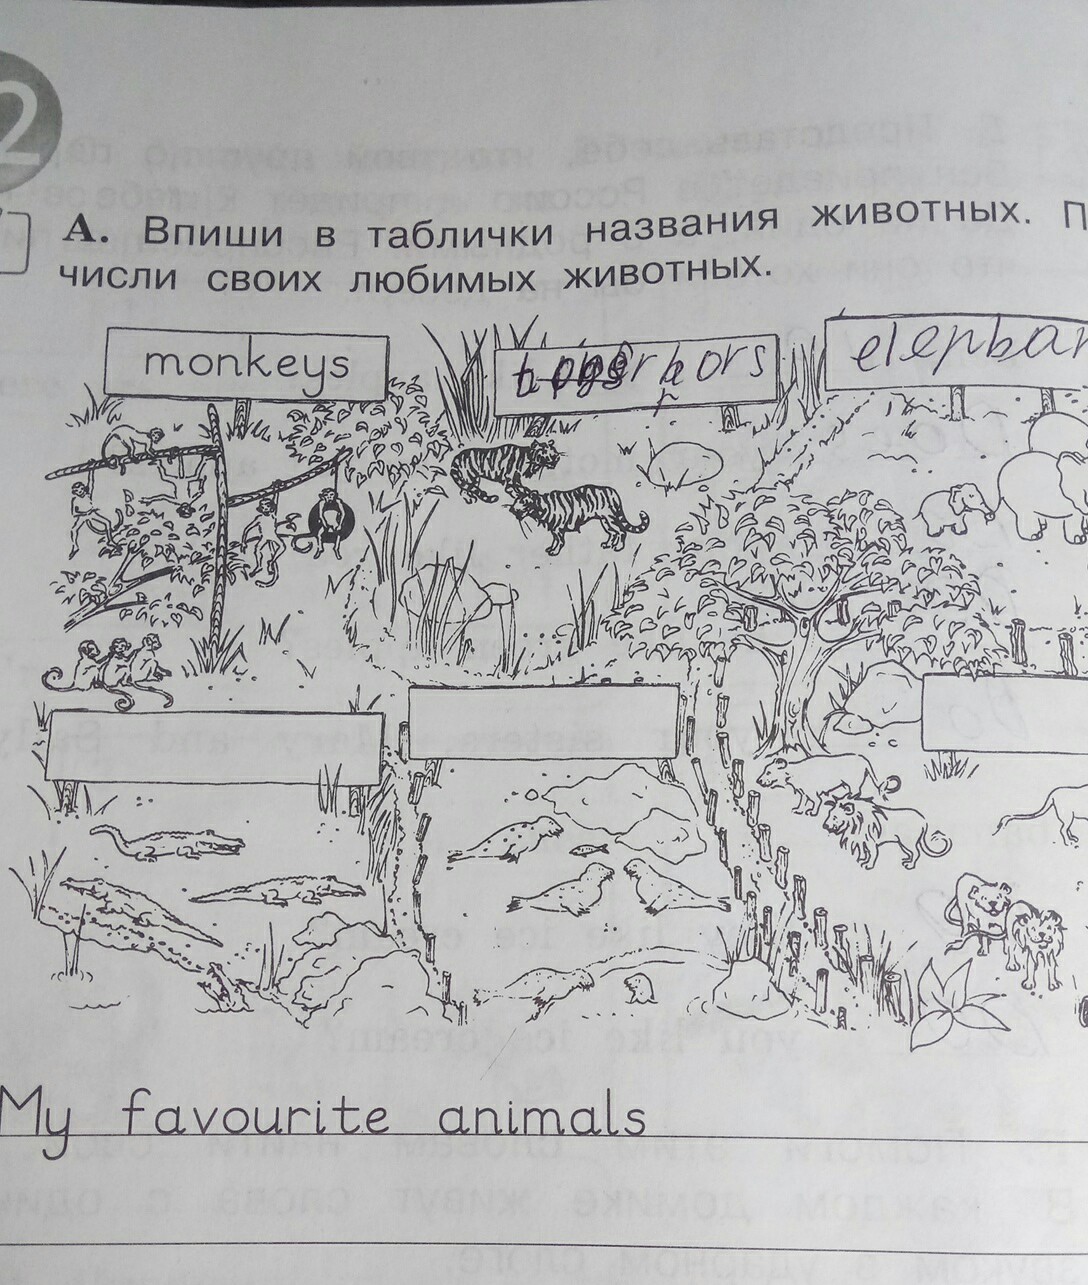 2
А. Впиши в таблички названия животных. П
числи своих любимых животных.
monkeys
elephan
My favourite animals